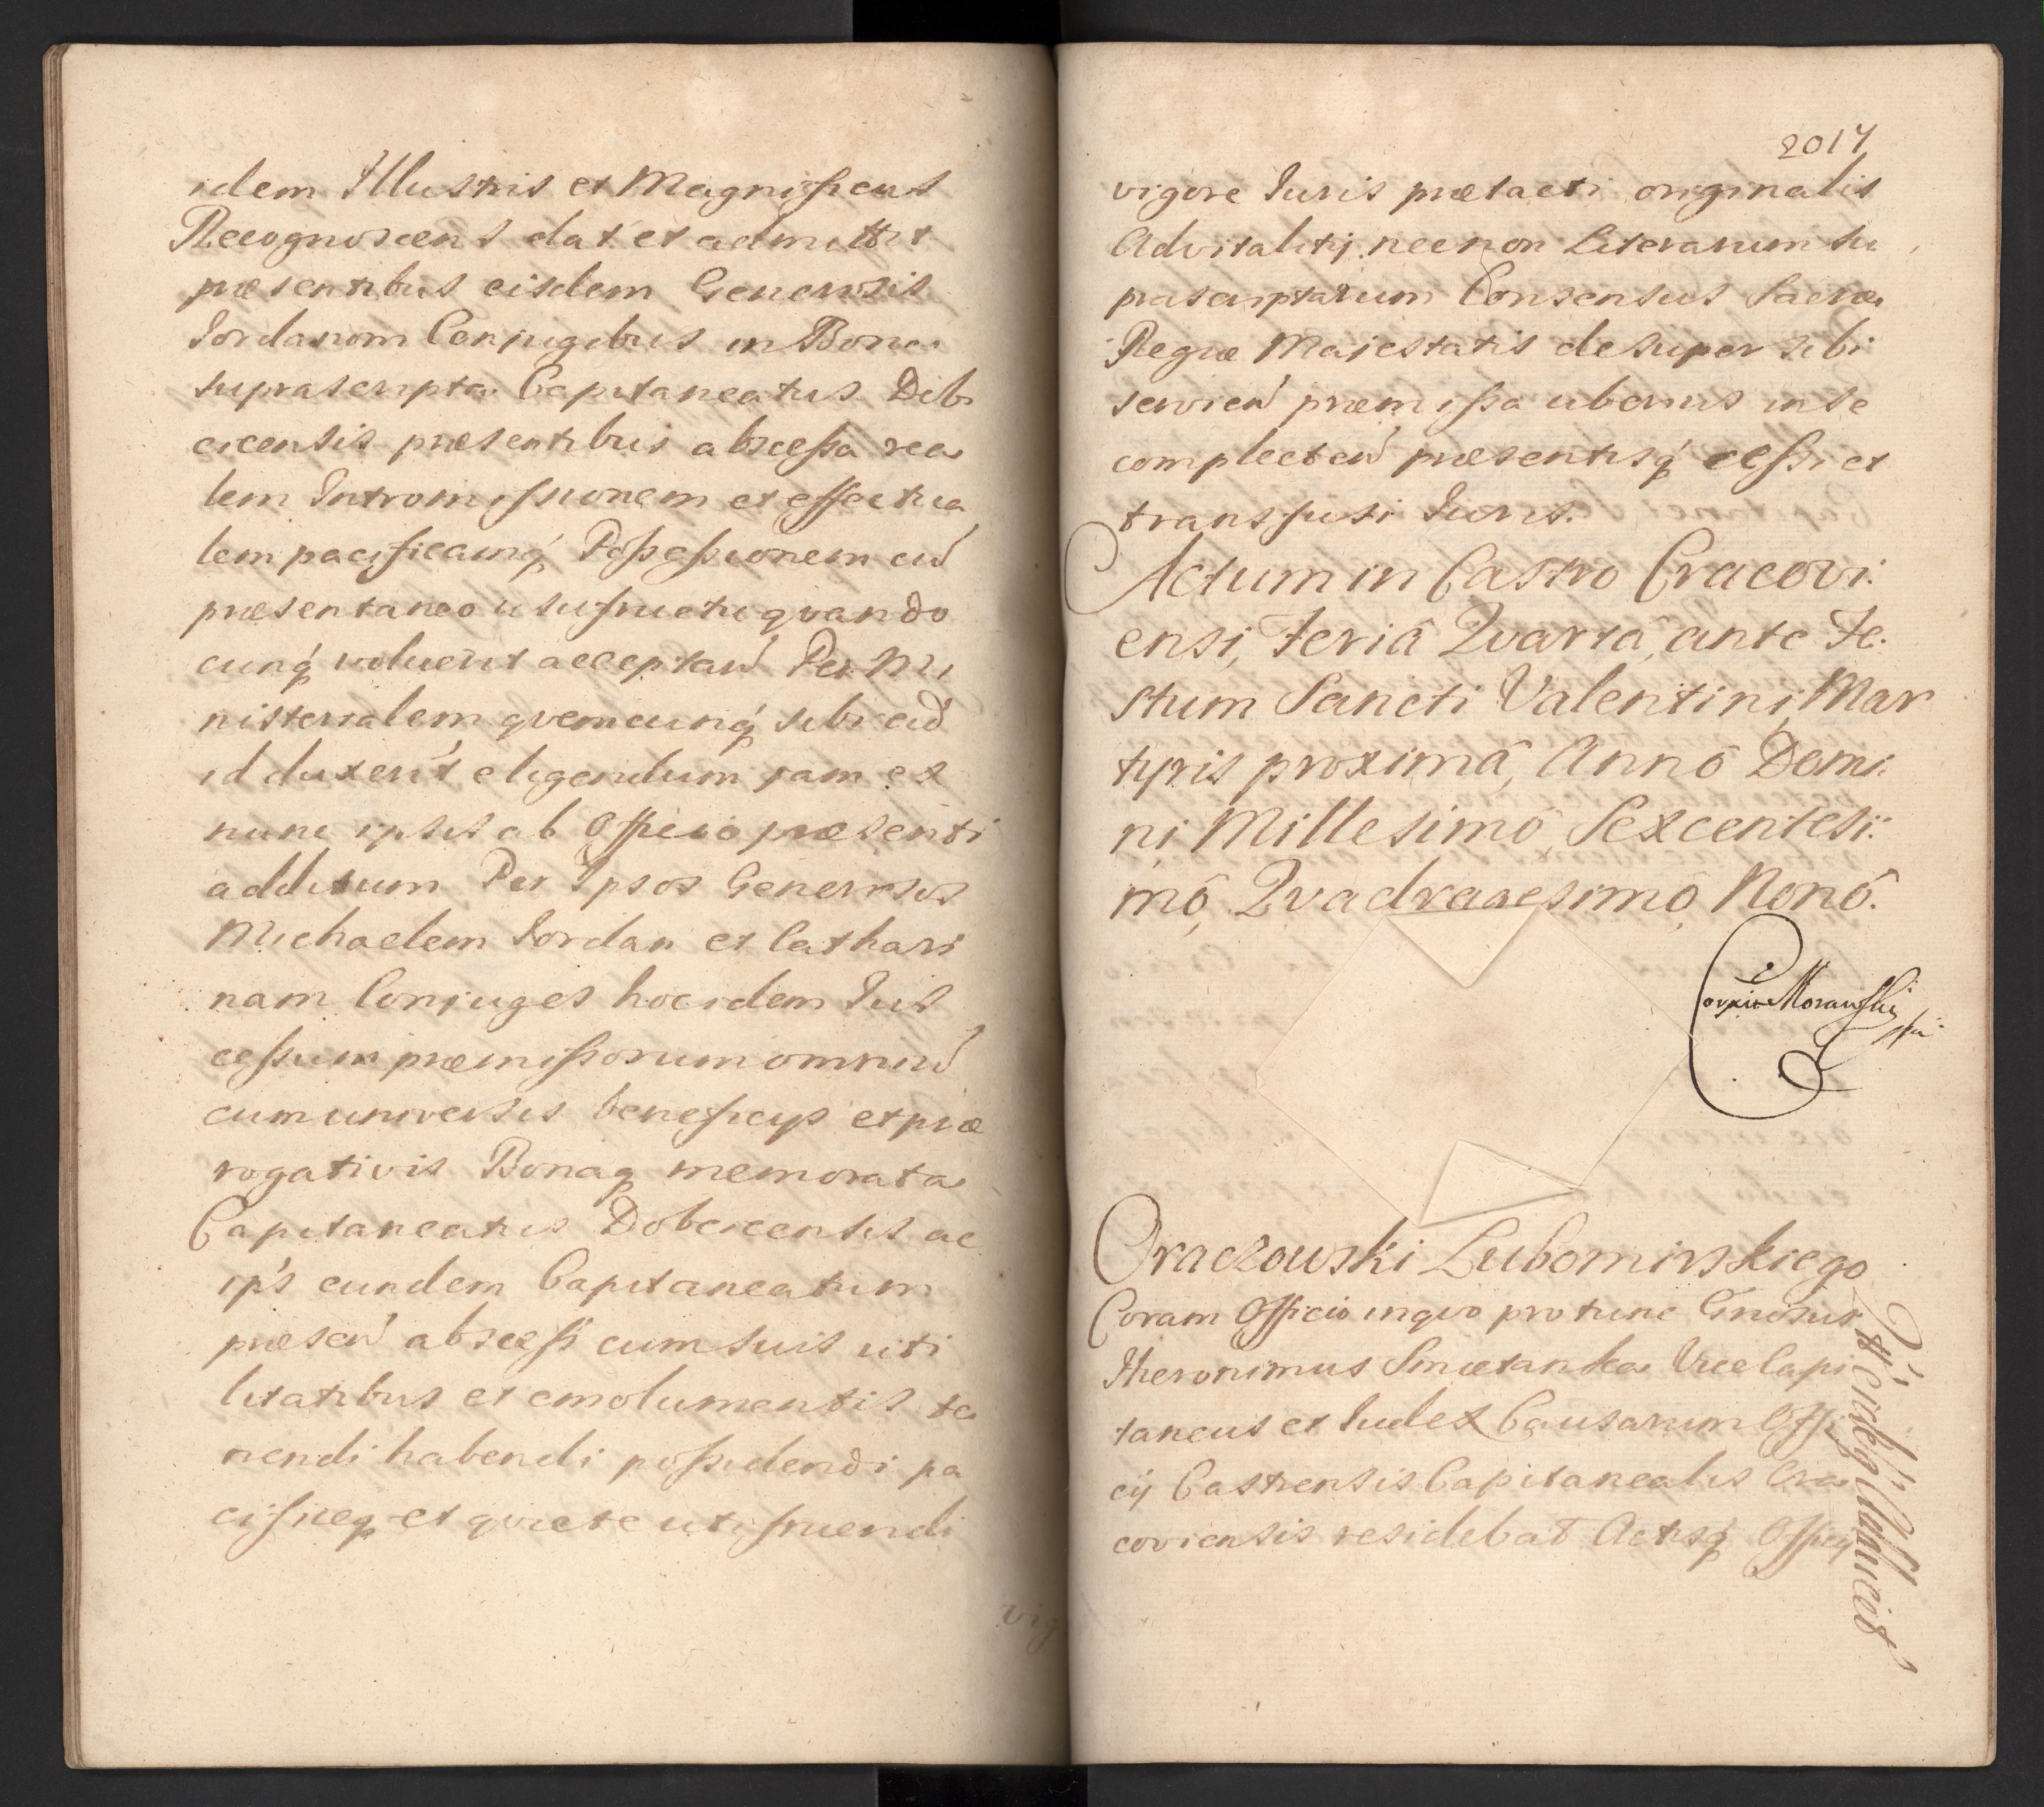 idem Illustris et Magnificus
Recognoscens dat et admittit
præsentibus eisdem Generosis
Iordanom Conjugibus in Bona
suprascripta Capitaneatus Dob
cicensis præsentibus abscessa rea
lem Intromissionem et effectua
lem pacificamq́ Possessionem cũ
præsentaneo usufructu qvando
cunq́ voluerit acceptań Per Mi
nisterialem qvemcunq́ sibi ad
id duxerit eligendum jam ex
nunc ipsis ab Officio præsenti
additum Per Ipsos Generosos
Michaelem Iordan et Cathari
nam Conjuges hoc idem Ius
cessum præmissorum omniũ
cum universis beneficijs et præ
rogativis Bonaq memorata
Capitaneatus Dobcicensis ac
ip's eundem Capitaneatum
præseń abscessi cum suis uti
litatibus et emolumentis te
nendi habendi possidendi pa
cificeq et qviete utifruendi
vig
2017
vigore Iuris prætacti originalis
Advitalitij necnon Literarum su
prascriptarum Consensus Sacræ
Regiæ Maiestatis desuper sibi
servień præmissa uberius in se
complecteń præsentisq́ cessi et
transfusi Iuris.
Actum in Castro Cracovi
ensi, Feriâ Qvarta, ante Fe
stum Sancti Valentini Mar
tyris proximâ, Annô Domi
ni Millesimô, Sexcentesi
mô, Qvadragesimô Nonô.
Morawski
Oraczowski Lubomirskiego
Coram Officio in qvo pro tunc Gnosus
Hieronimus Smietanka Vice Capi
taneus et Iudex Causarum Offi
cij Castrensis Capitanealis Cra
coviensis residebat Actisq́ Officij